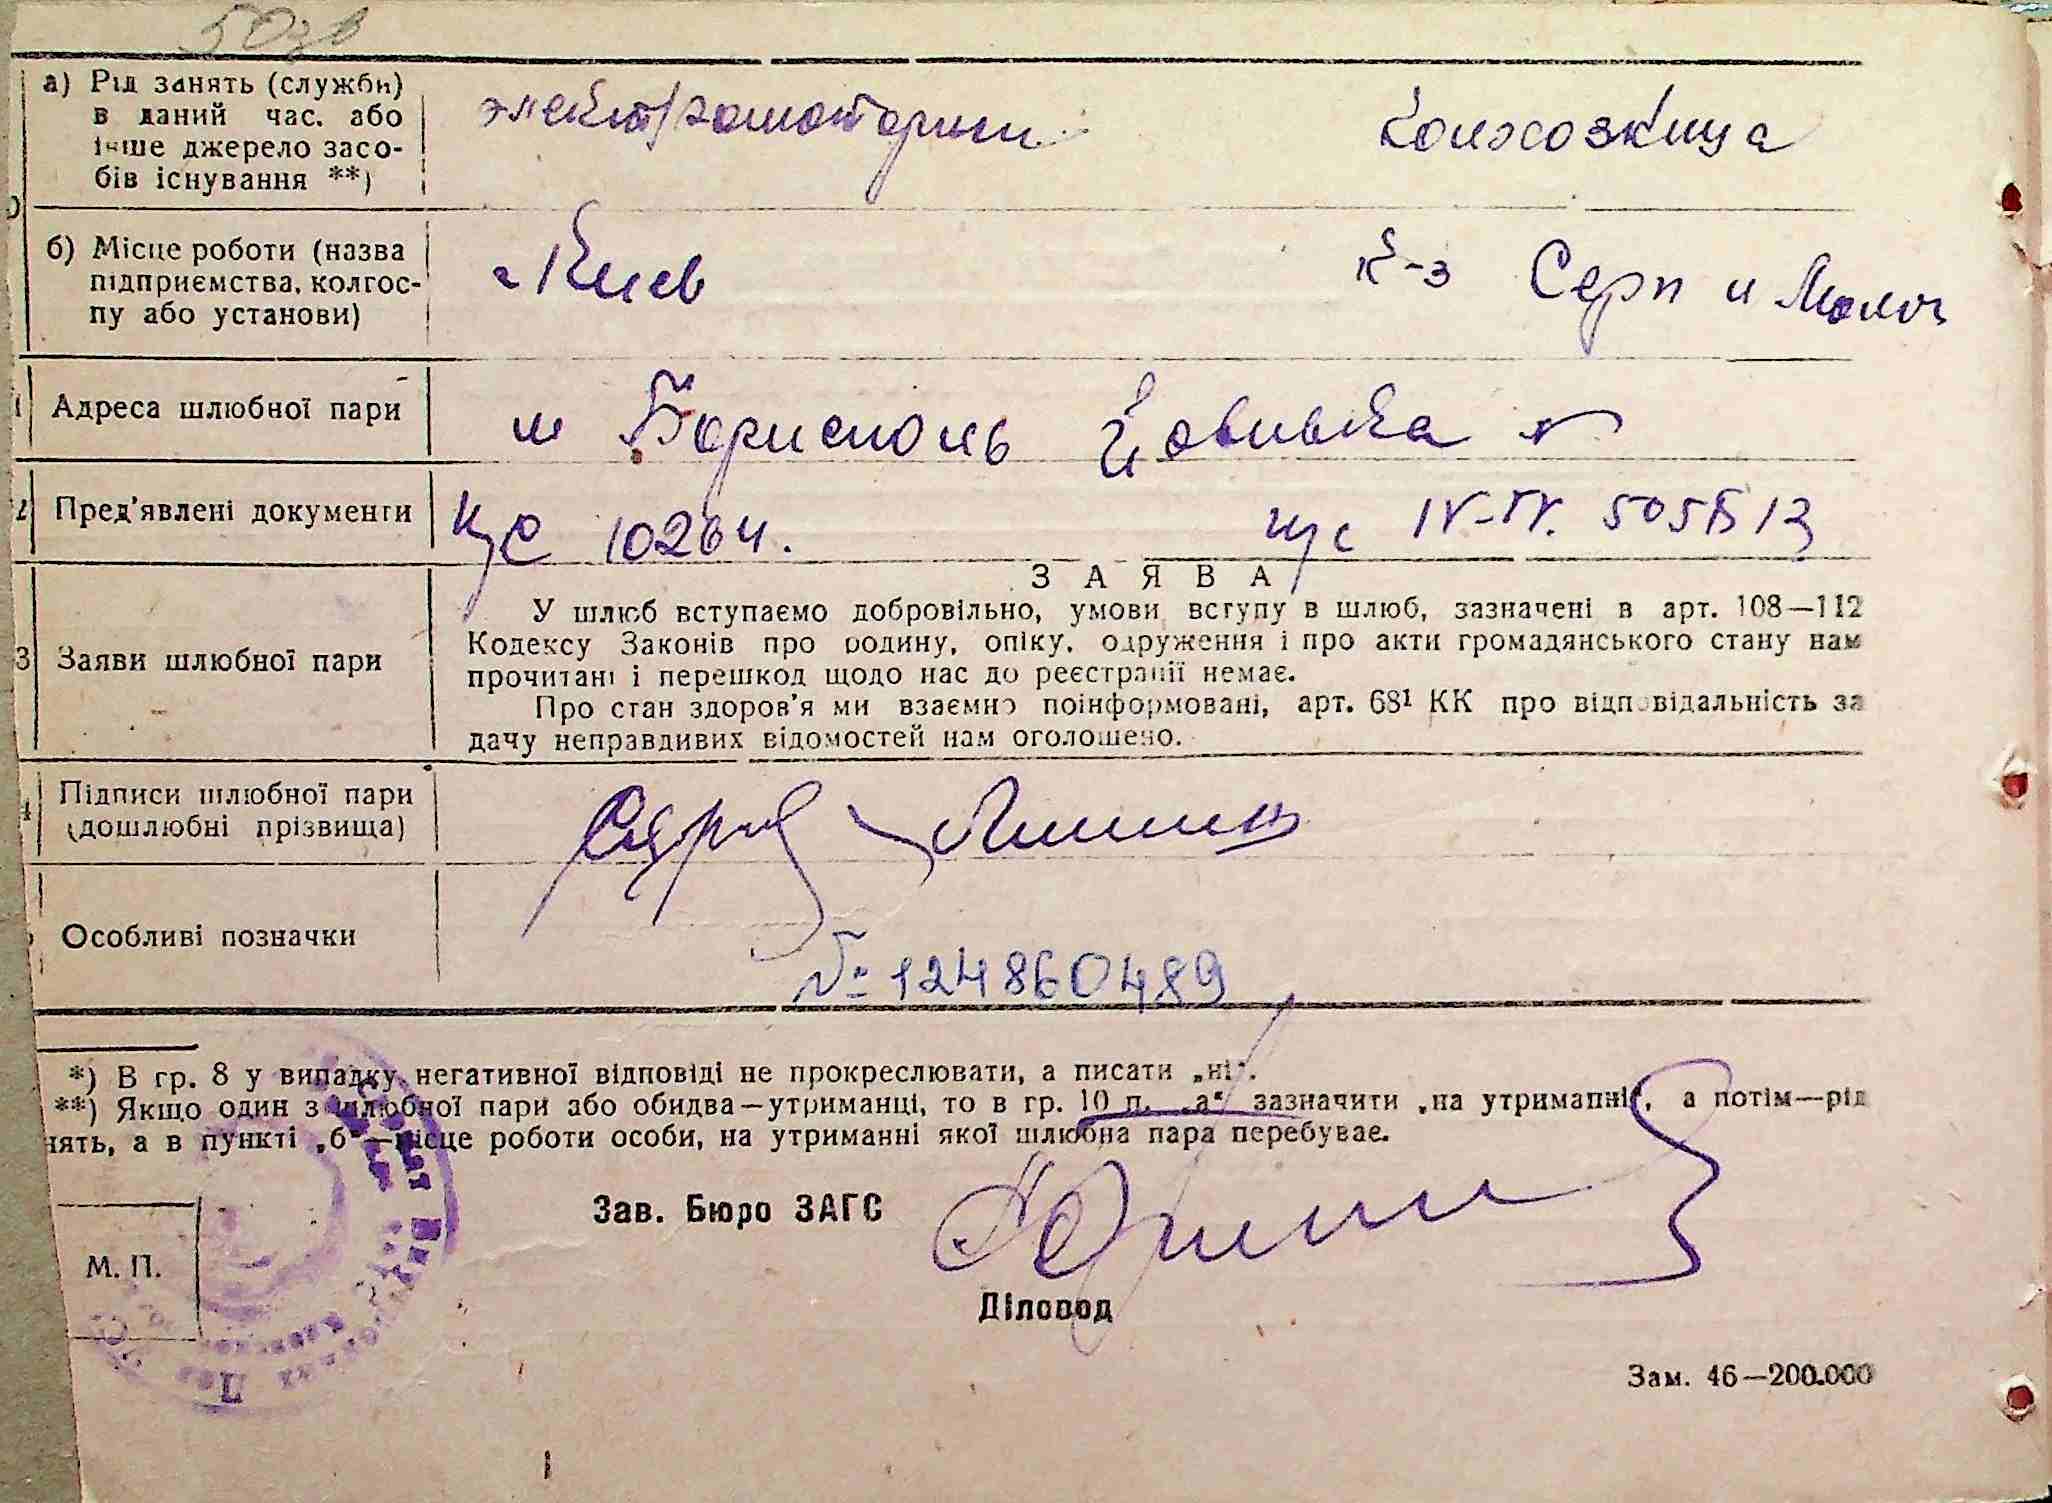 а) Рід занять (служби) в даний час, або інше джерело засобів існування **)
колхозница
б) Місце роботи (назва підприємства, колгоспу або установи)
г Киев
к-з Серп и Молот
Адреса шлюбної пари
м Борисполь
Пред'явлені документи
10264.
IV-ТУ. 505
ЗАЯВА
3 Заяви шлюбної пари
У шлюб вступаємо добровільно, умови вступу в шлюб, зазначені в арт. 108—112
Кодексу Законів про родину, опіку, одруження і про акти громадянського стану нам
прочитані і перешкод щодо нас до реєстрації немає.
Про стан здоров'я ми взаємно поінформовані, арт. 68¹ КК про відповідальність за
дачу неправдивих відомостей нам оголошено.
Підписи шлюбної пари
(дошлюбні прізвища)
Особливі позначки
№ 124860489
*) В гр. 8 у випадку негативної відповіді не прокреслювати, а писати „ні“.
**) Якщо один з шлюбної пари або обидва—утриманці, то в гр. 10 п. „а“ зазначити „на утриманні“, а потім—рід
нять, а в пункті „б“—місце роботи особи, на утриманні якої шлюбна пара перебуває.
Зав. Бюро ЗАГС
М. П.
Діловод
Зам. 46—200.000